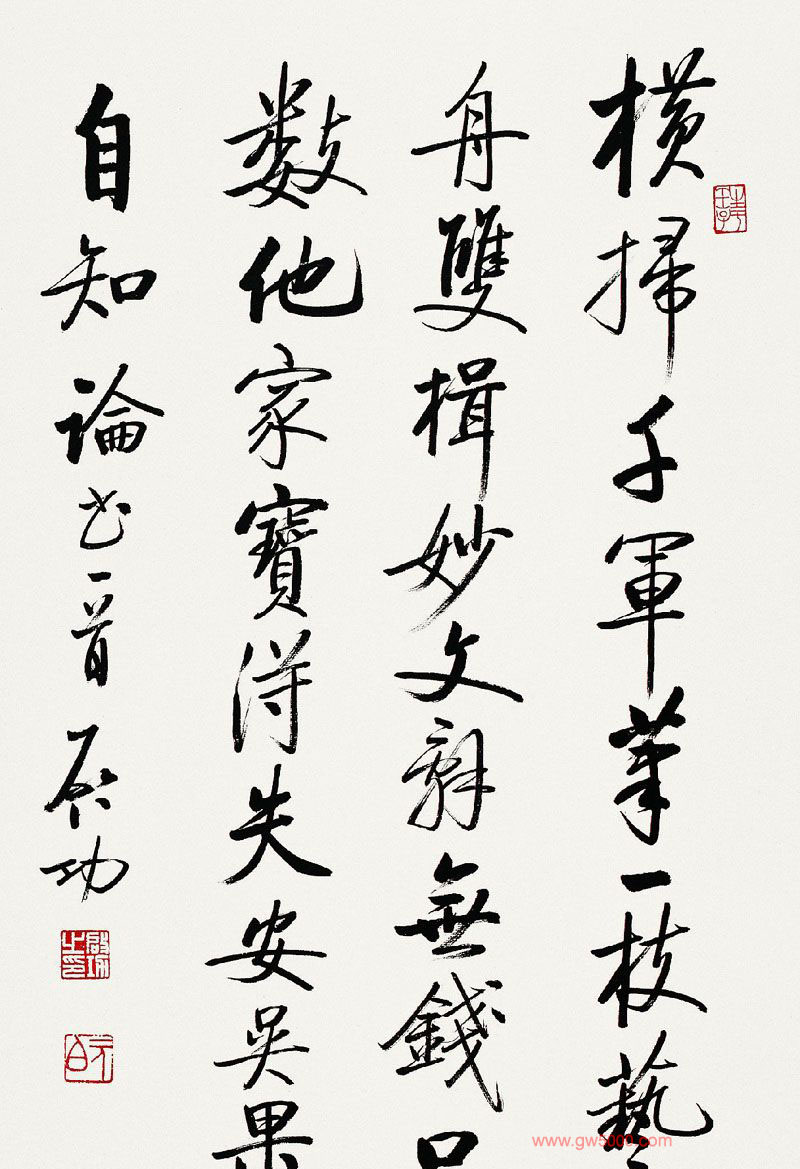 橫掃千軍筆一枝藝
舟雙楫妙文辭無錢
數他家寶得失安吳果
自知論書一首 啟功
啟功之印
元白
www.gw5000.com